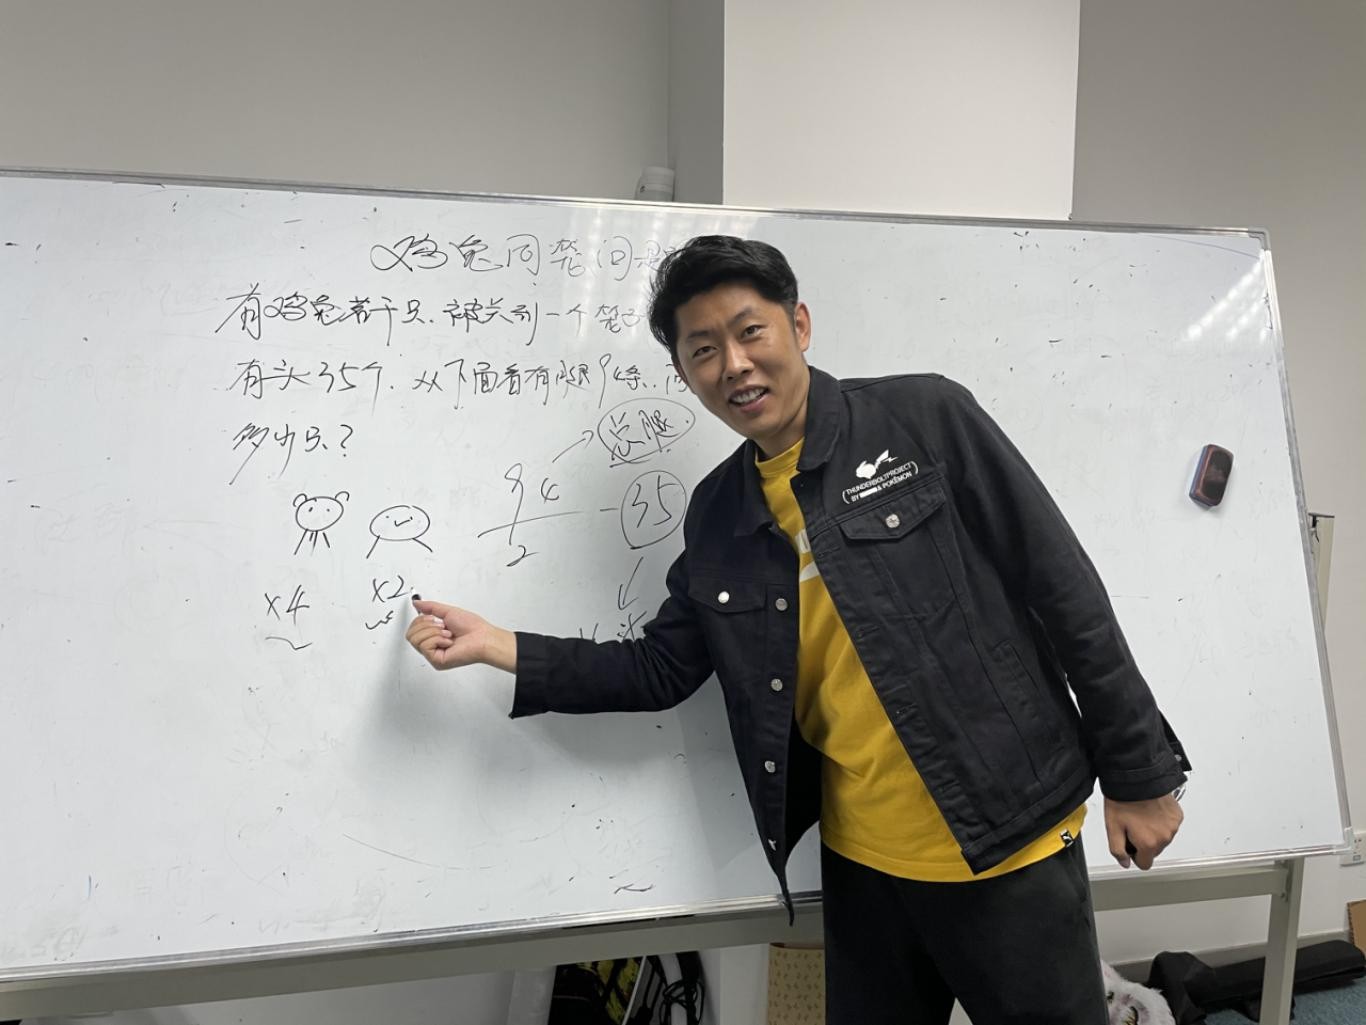 鸡兔同笼问题
有鸡兔若干只.被关到一个笼子
有头35个.从下面看有腿94条.
多少只?
总腿
94
2
- 35
头
x4
x2
THUNDERBOLTPROJECT
BY & POKÉMON